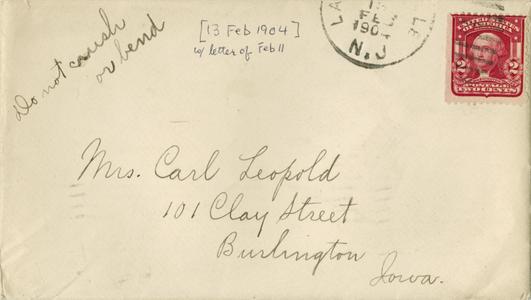 Do not crush
or bend
[13 Feb 1904]
w/ letter of Feb 11
LA
LE
FEB
1904
N.J
UNITED STATES
OF AMERICA
2 2
POSTAGE
TWO CENTS
Mrs. Carl Leopold
101 Clay Street
Burlington
Iowa.